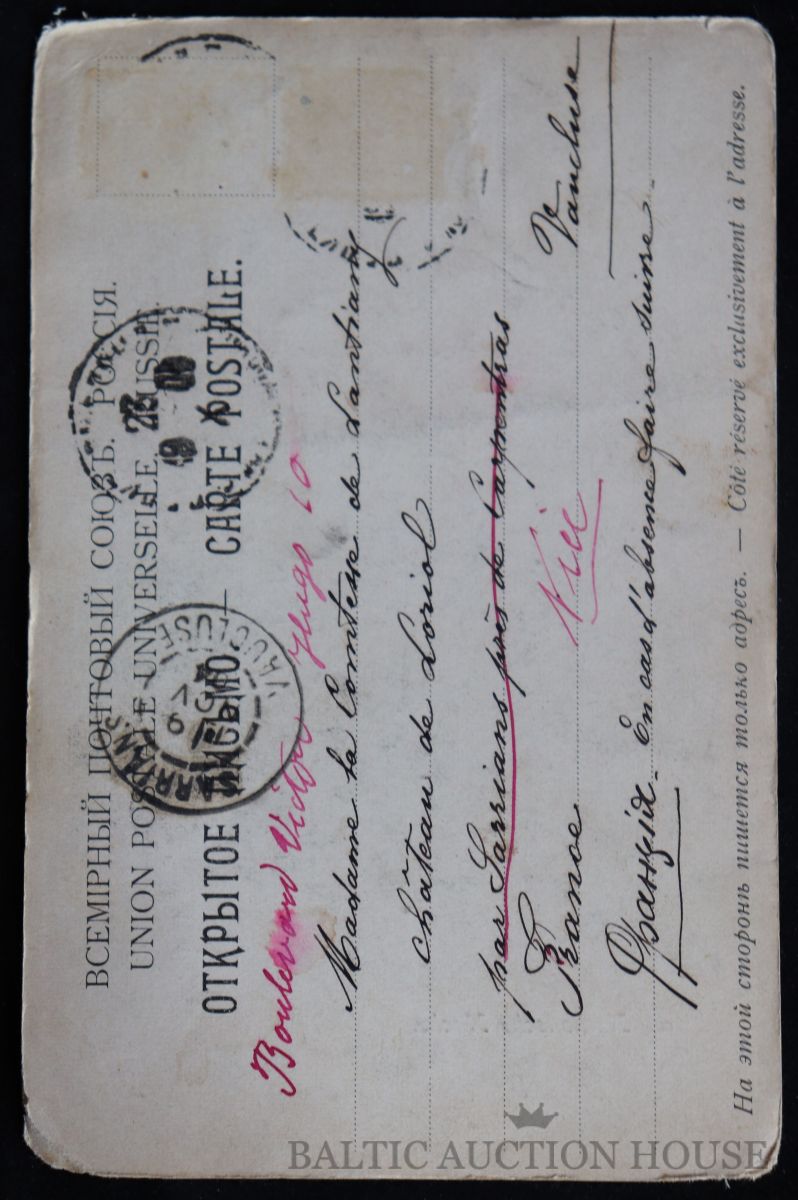 ВСЕМІРНЫЙ ПОЧТОВЫЙ СОЮЗЪ. РОССІЯ.
UNION POSTALE UNIVERSELLE. RUSSIE.
ОТКРЫТОЕ ПИСЬМО. — CARTE POSTALE.
SARRIANS
VAUCLUSE
Boulevard Victor Hugo 10
Madame la Comtesse de Lantiany
château de Loriol
par Sarrians près de Carpentras
France
Nice
Vaucluse
Франція. En cas d'absence faire suivre.
На этой сторонѣ пишется только адресъ. — Côté réservé exclusivement à l'adresse.
BALTIC AUCTION HOUSE